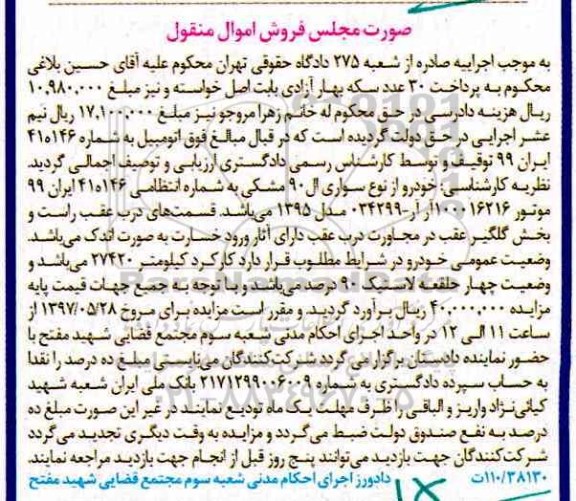 صورت مجلس فروش اموال منقول
به موجب اجراییه صادره از شعبه ۲۷۵ دادگاه حقوقی تهران محکوم علیه آقای حسین بلاغی
محکوم به پرداخت ۳۰ عدد سکه بهار آزادی بابت اصل خواسته و نیز مبلغ ۱۰,۹۸۰,۰۰۰
ریال هزینه دادرسی در حق محکوم له خانم زهرا مروجو نیز مبلغ ۱۷,۱۰۰,۰۰۰ ریال نیم
عشر اجرایی در حق دولت گردیده است که در قبال مبالغ فوق اتومبیل به شماره ۱۴۶ه۴۱
ایران ۹۹ توقیف و توسط کارشناس رسمی دادگستری ارزیابی و توصیف اجمالی گردید.
نظریه کارشناسی: خودرو از نوع سواری ال۹۰ مشکی به شماره انتظامی ۱۴۶ه۴۱ ایران ۹۹
موتور ۱۶۲۱۶ ۱۰۰ار آر-۰۳۴۲۹۹ مدل ۱۳۹۵ می‌باشد. قسمت‌های درب عقب راست و
بخش گلگیر عقب در مجاورت درب عقب دارای آثار ورود خسارت به صورت اندک می‌باشد.
وضعیت عمومی خودرو در شرایط مطلوب قرار دارد کارکرد کیلومتر ۲۷۴۲۰ می‌باشد و
وضعیت چهار حلقه لاستیک ۹۰ درصد می‌باشد و با توجه به جمیع جهات قیمت پایه
مزایده ۴۰۰,۰۰۰,۰۰۰ ریال برآورد گردید و مقرر است مزایده برای مروخ ۱۳۹۷/۰۵/۲۸ از
ساعت ۱۱ الی ۱۲ در واحد اجرای احکام مدنی شعبه سوم مجتمع قضایی شهید مفتح با
حضور نماینده دادستان برگزار می گردد شرکت‌کنندگان می‌بایستی مبلغ ده درصد را نقدا
به حساب سپرده دادگستری به شماره ۲۱۷۱۲۹۹۰۰۶۰۰۹ بانک ملی ایران شعبه شهید
کیائی‌نژاد واریز و الباقی را ظرف مهلت یک ماه تودیع نمایند در غیر این صورت مبلغ ده
درصد به نفع صندوق دولت ضبط می‌گردد و مزایده به وقت دیگری تجدید می‌گردد
شرکت‌کنندگان جهت بازدید می‌توانند پنج روز قبل از انجام جهت بازدید مراجعه نمایند.
۱۱۰/۳۸۱۳۰ت دادورز اجرای احکام مدنی شعبه سوم مجتمع قضایی شهید مفتح